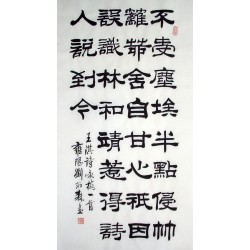 不受塵埃半點侵竹
籬茆舍自甘心祇因
誤識林和靖惹得詩
人說到今
王淇詩詠梅一首
陽劉書